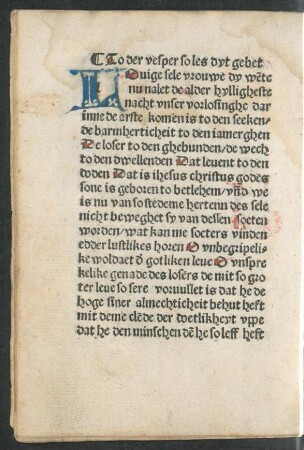 ¶ To der vesper so les dyt gebet
Ouige sele vrouwe dy wēte
nu nalet de alder hylligheste
nacht vnser vorlosinghe dar
inne de erste komen is to den seeken⸗
de barmherticheit to den iamerghen
De loser to den ghebunden/ de wech
to den dwellenden Dat leuent to den
doden Dat is ihesus christus godes
sone is geboren to betlehem/ vnd we
is nu van so stedeme hertenn des sele
nicht beweghet sy van dessen soeten
worden/ wat kan me soeters vinden
edder lustlikes horen O vnbegripeli⸗
ke woldaet d̄ gotliken leue O vnspre
kelike genade des losers de mit so gro
ter leue so sere voruullet is dat he de
hoge siner almechticheit behut heft
mit deme clēde der doetlikheyt vppe
dat he den minschen dē he so leff heft